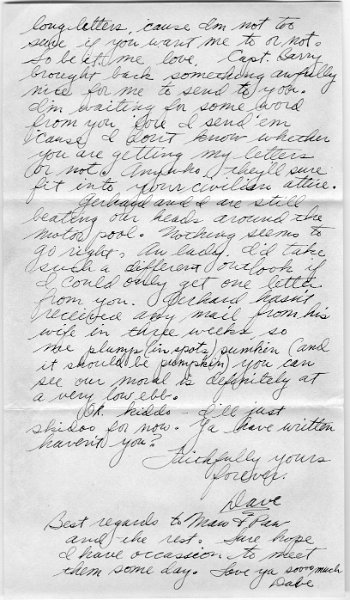 long letters, 'cause I'm not too
sure if you want me to or not.
So be it, me love. Capt. Barry
brought back something awfully
nice for me to send to you.
I'm waiting for some word
from you 'fore I send 'em
'cause I don't know whether
you are getting my letters
or not. Anywho, they'll sure
fit into your civilian attire.
Gerhard and I are still
beating our heads around the
motor pool. Nothing seems to
go right. Aw lady, I'd take
such a different outlook if
I could only get one letter
from you. Gerhard hasn't
received any mail from his
wife in three weeks so
me plump (in spots) pumkin (and
it should be pumpkin) you can
see our moral is definitely at
a very low ebb.
OK kiddo - I'll just
skidoo for now. Ya have written
haven't you?
Faithfully yours
forever.
Dave
Best regards to Maw & Paw
and the rest. Sure hope
I have occassion to meet
them some day. Love ya sooo much
Dave